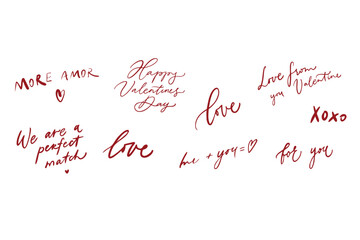 MORE AMOR
Happy
Valentines
Day
love
Love from
you Valentine
XOXO
We are a
perfect
match
love
me + you =
for you